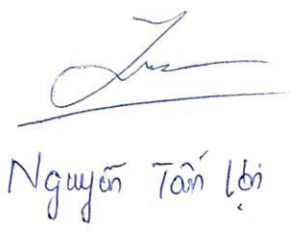 Nguyễn Tấn Lợi